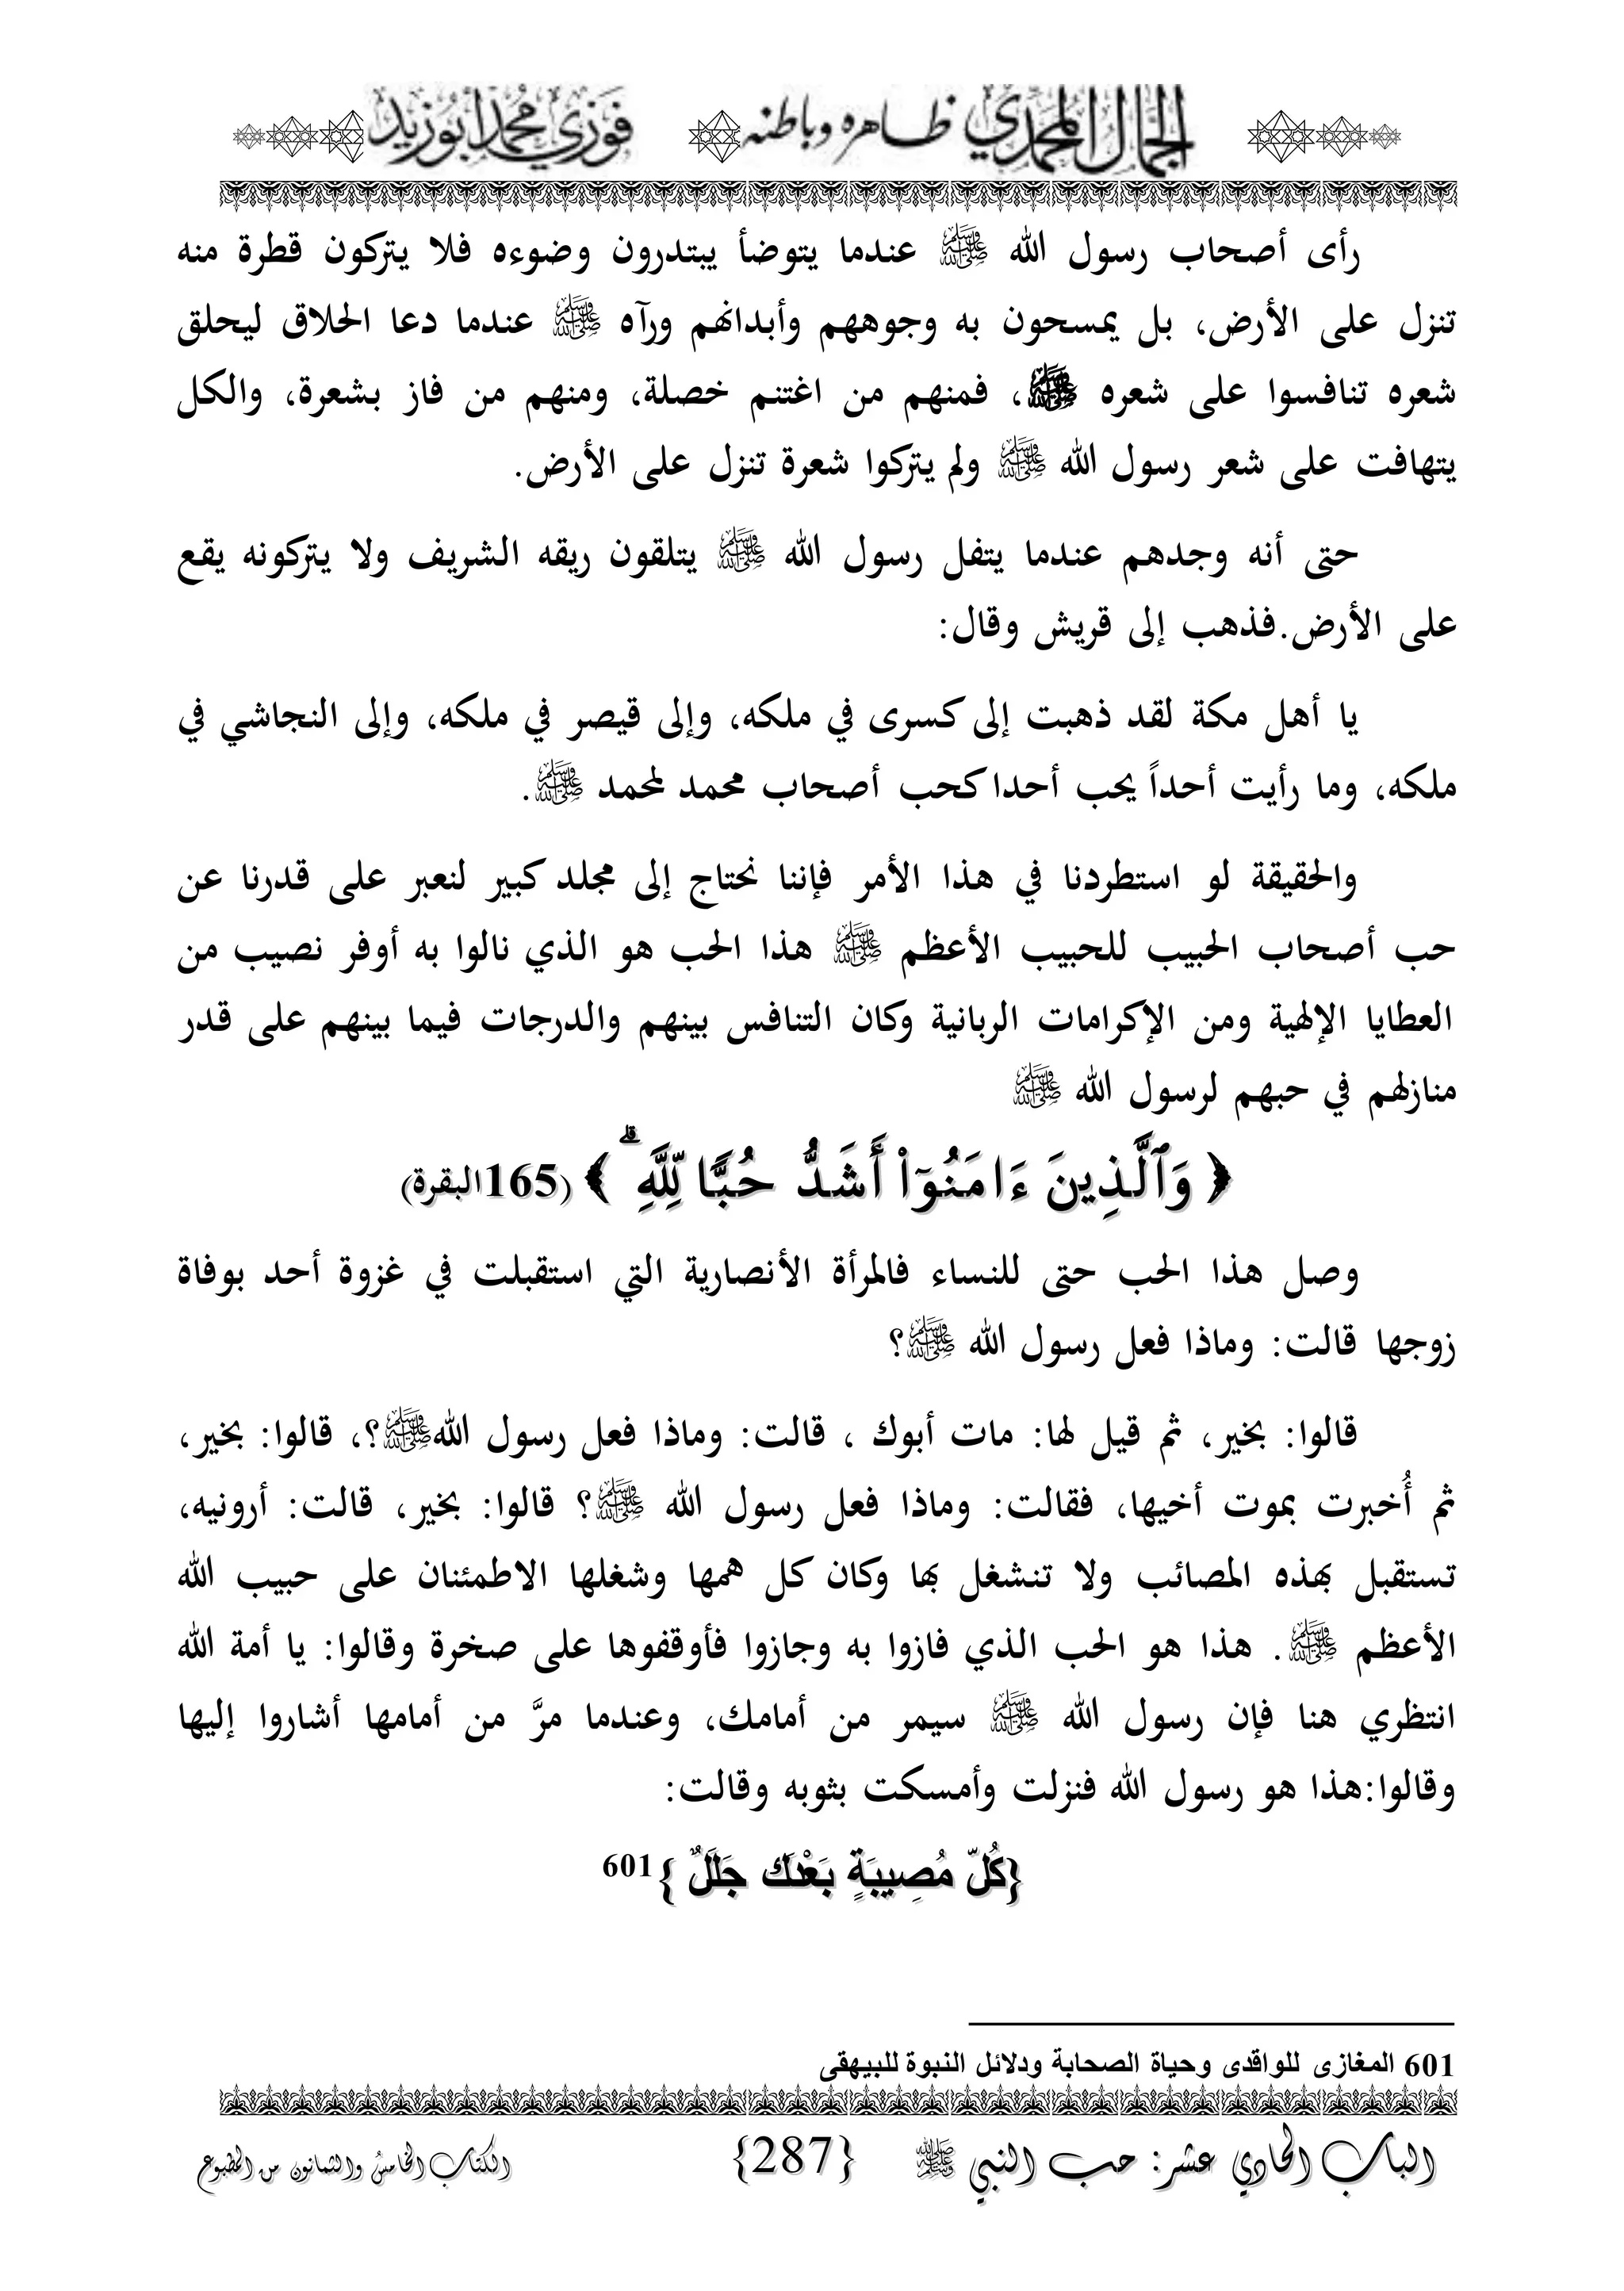 الجمال المحمدي ظاهره وباطنه فوزي محمد أبوزيد
رأى أصحاب رسول الله ﷺ عندما يتوضأ يبتدرون وضوءه فلا يتركون قطرة منه
تنزل على الأرض، بل يمسحون به وجوههم وأبدانهم ورآه ﷺ عندما دعا الحلاق ليحلق
شعره تنافسوا على شعره ﷺ، فمنهم من اغتنم خصلة، ومنهم من فاز بشعرة، والكل
يتهافت على شعر رسول الله ﷺ ولم يتركوا شعرة تنزل على الأرض.
حتى أنه وجدهم عندما يتفل رسول الله ﷺ يتلقون ريقه الشريف ولا يتركونه يقع
على الأرض.فذهب إلى قريش وقال:
يا أهل مكة لقد ذهبت إلى كسرى في ملكه، وإلى قيصر في ملكه، وإلى النجاشي في
ملكه، وما رأيت أحداً يحب أحدا كحب أصحاب محمد لمحمد ﷺ.
والحقيقة لو استطردنا في هذا الأمر فإننا نحتاج إلى مجلد كبير لنعبر على قدرنا عن
حب أصحاب الحبيب للحبيب الأعظم ﷺ هذا الحب هو الذي نالوا به أوفر نصيب من
العطايا الإلهية ومن الإكرامات الربانية وكان التنافس بينهم والدرجات فيما بينهم على قدر
منازلهم في حبهم لرسول الله ﷺ
﴿ وَٱلَّذِينَ ءَامَنُوٓا۟ أَشَدُّ حُبًّا لِّلَّهِ ۗ ﴾ (165البقرة)
وصل هذا الحب حتى للنساء فالمرأة الأنصارية التي استقبلت في غزوة أحد بوفاة
زوجها قالت: وماذا فعل رسول الله ﷺ؟
قالوا: بخير، ثم قيل لها: مات أبوك ، قالت: وماذا فعل رسول اللهﷺ؟، قالوا: بخير،
ثم أُخبرت بموت أخيها، فقالت: وماذا فعل رسول الله ﷺ؟ قالوا: بخير، قالت: أرونيه،
تستقبل بهذه المصائب ولا تنشغل بها وكان كل همها وشغلها الاطمئنان على حبيب الله
الأعظم ﷺ. هذا هو الحب الذي فازوا به وجازوا فأوقفوها على صخرة وقالوا: يا أمة الله
انتظري هنا فإن رسول الله ﷺ سيمر من أمامك، وعندما مرَّ من أمامها أشاروا إليها
وقالوا:هذا هو رسول الله فنزلت وأمسكت بثوبه وقالت:
{كُلّ مُصِيبَةٍ بَعْدَكَ جَلَلٌ } 601
601 المغازى للواقدى وحياة الصحابة ودلائل النبوة للبيهقى
الباب الحادي عشر: حب النبي ﷺ {287} الكتاب الخامس والثمانون من المطبوع